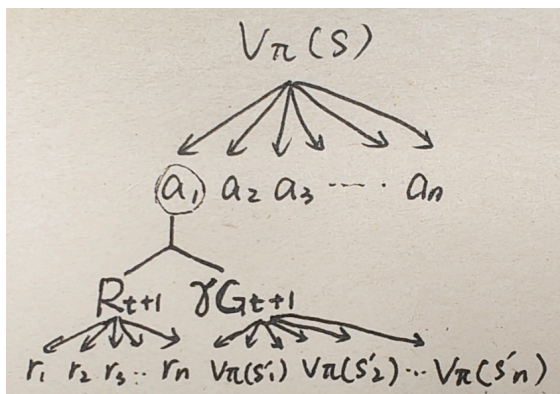 Vπ(S)
a₁ a₂ a₃ ---- · aₙ
Rt+1 γGt+1
r₁ r₂ r₃ ·· rₙ Vπ(S'₁) Vπ(S'₂) ··· Vπ(S'n)